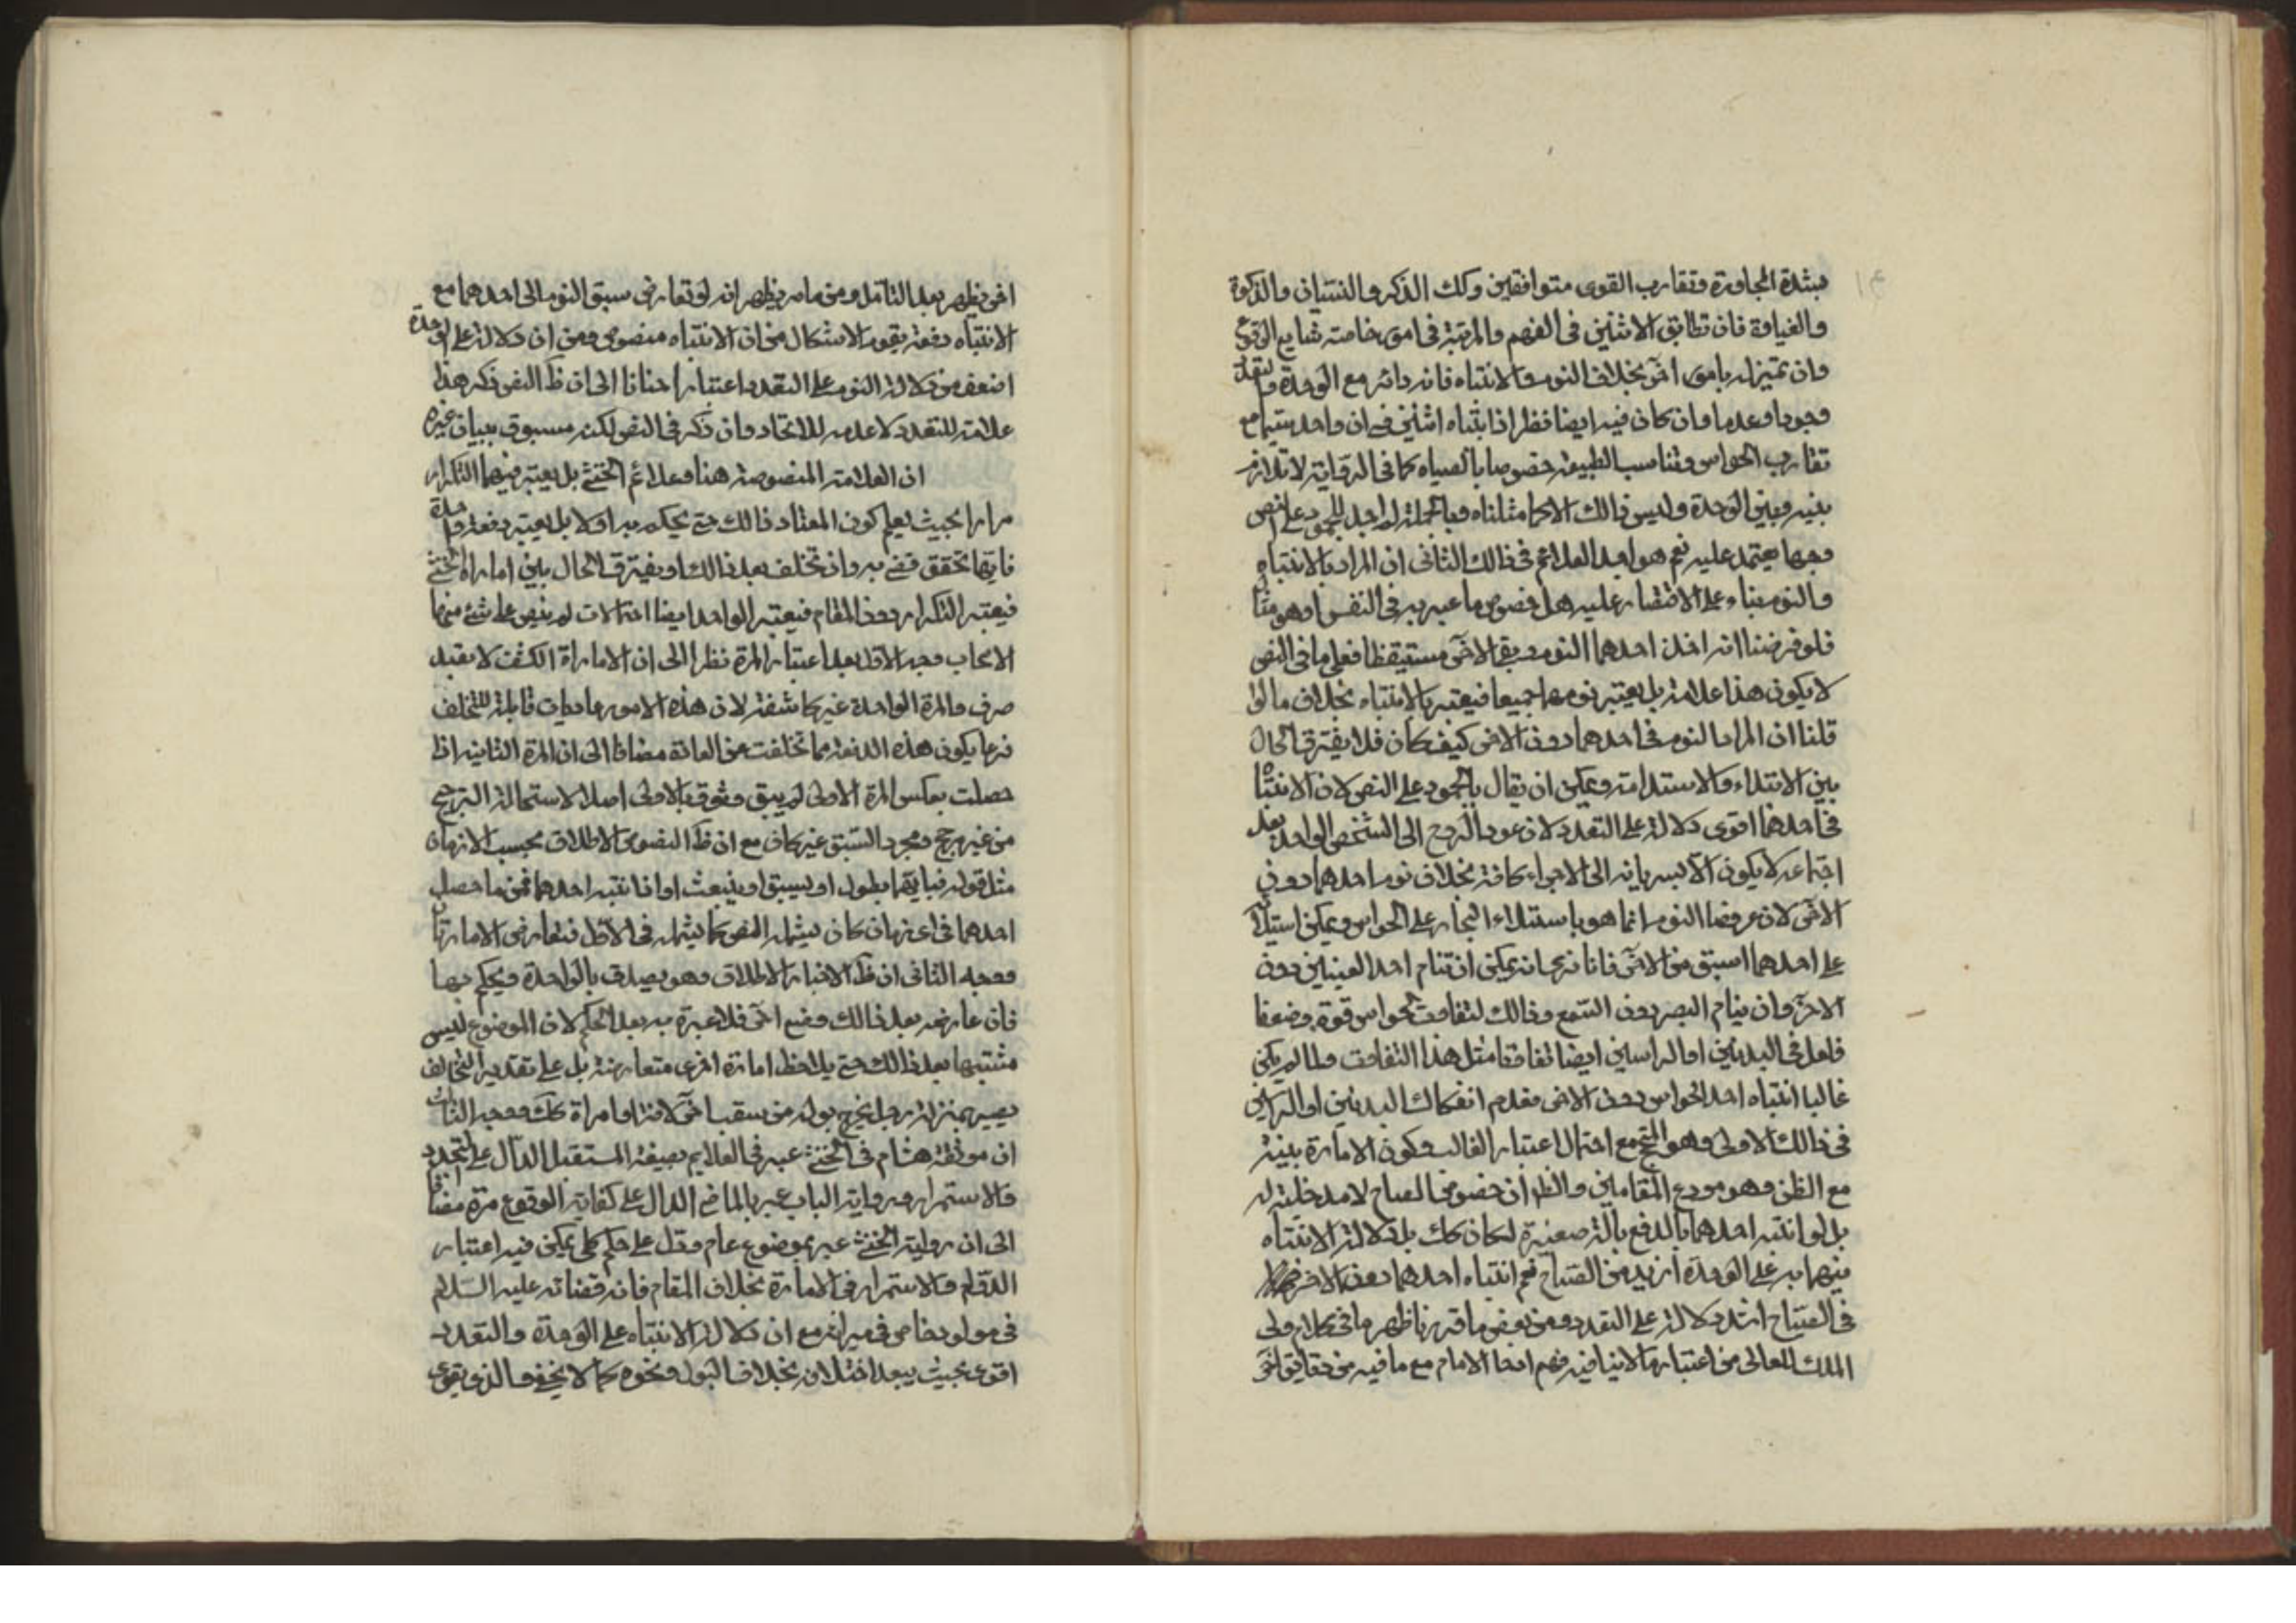 لشدة المجاورة وتقارب القوى متوافقين وكك الذكر والنسيان والذكوة
والغباوة فان تطابق الاثنين في الفهم والمرتبة في امور خاصته شايع الوقوع
وان تميز له بامور اخر بخلاف النوم والانتباه فانه دائر مع الوحدة والتعدد
وجودا وعدما وان كان فيه ايضا نظر اذ انتباه اثنين في ان واحد سيما مع
تقارب الحواس وتناسب الطبيعة خصوصا بالصياح كما في الرواية لا تلازم
بينه وبين الوحدة وليس ذالك الا كما مثلناه وبالجملة لم اجد للجمود على النص
وجها يعتمد عليه نعم هو احد العلائم في ذالك الثاني ان المراد بالانتباه
والنوم بناء على الاقتصار عليه هل خصوص ما عبر به في النص او هو مثا
فلو فرضنا انه اخذ احدهما النوم وبقي الاخر مستيقظا فعلى ما في النص
لا يكون هذا علامة بل يعتبر نومهما جميعا فيعتبر بالانتباه بخلاف ما لو
قلنا ان المراد النوم في احدهما دون الاخر كيف كان فلا يفترق الحال
بين الابتداء والاستدامة ويمكن ان يقال بالجمود على النص لان الانتباه
في احدهما اقوى دلالة على التعدد لان عود الروح الى الشخص الواحد بعد
اجتماعه لا يكون الا بسريانه الى الاجزاء كافة بخلاف نوم احدهما دون
الاخر لان عروض النوم انما هو باستيلاء البخار على الحواس ويمكن استيلا
على احدهما اسبق من الاخر فانا نرى انه يمكن ان تنام احد العينين دون
الاخر وان ينام البصر دون السمع وذالك لتفاوت الحواس قوة وضعفا
فلعل في البدنين او الراسين ايضا تفاوتا مثل هذا التفاوت ولما لم يكن
غالبا انتباه احد الحواس دون الاخر فعدم انفكاك البدنين او الراسين
في ذالك الاولى وهو المتجه مع احتمال اعتبار الغالب وكون الامارة بينة
مع الظن وهو موجود في المقامين والظ ان خصوص الصياح لا مدخلية له
بل لو انتبه احدهما بالدفع بالة صغيرة لكان كك بل دلالة الانتباه
منهما به على الوحدة ازيد من الصياح نعم انتباه احدهما دون الاخر
في الصياح اشد دلالة على التعدد ومن بعض ما قررنا ظهر ما في كلام ولي
الملك المعالى من اعتبار ما لا ينافيه فهم افحا الامام مع ما فيه من حقايق اخر
اخر يظهر بعد التامل ومن مامر يظهر انه لو تعارض سبق النوم الى احدهما مع
الانتباه دفعة يقوم الاشكال من ان الانتباه منصوص ومن ان دلالة على الوحدة
اضعف من دلالة النوم على التعدد اعتبارا مضافا الى ان ظ النص ذكر هذا
علامة للتعدد لا عدمه للاتحاد وان ذكر في النص لكنه مسبوق ببيان غيره
ان العلامة المنصوصة هنا وعلائم الخنثى بل يعتبر فيهما التكرار
مرارا بحيث يعلم كون المعتاد ذالك حتى يحكم به اولا بل يعتبر دفعة واحدة
فايهما تحقق قضي به وان تخلف بعد ذالك او يفترق الحال بين اماراة الخنثى
فيعتبر التكرار دون المقام فيعتبر الواحد ايضا احتمالات لم ينص على شئ منها
الاصحاب وجه الاول بعد اعتبار المرة نظرا الى ان الاماراة الكشف لا تعبد
صرف والمرة الواحدة غير كاشفة لان هذه الامور عاديات قابلة للتخلف
فربما يكون هذه الدفعة مما تخلفت عن العادة مضافا الى ان المرة الثانية اذا
حصلت بعكس المرة الاولى لم يبق وثوق بالاولى اصلا لاستحالة الترجيح
من غير مرجح ومجرد السبق غير كاف مع ان ظ النصوص الاطلاق بحسب الازمان
مثل قوله فبايهما يبول او يسبق او ينبعث او اذا انتبه احدهما فمن ما حصل
احدهما في اى زمان كان ليشمله النص كما يشمله في الاول فتعارض الامارتان
ووجه الثاني ان ظ الاخبار الاطلاق وهو يصدق بالواحدة ويحكم بها
فان عارضه بعد ذالك وضع اخر فلا عبرة به بعد الحكم لان الموضوع ليس
مشتبها بعد ذالك حتى يلاحظ امارة اخرى متعارضة بل على تقدير التخالف
يصير بمنزلة رجل يخرج بوله من سقب اخر لافة او امراة كك ووجه الثالث
ان موثقة هشام في الخنثى عبر في العلايم بصيغة المستقبل الدال على التجدد
والاستمرار ورواية الباب عبر بالماضي الدال على كفاية الوقوع مرة مضافا
الى ان رواية الخنثى عبر بموضوع عام ودل على حكم كلي يمكن فيه اعتبار
الدوام والاستمرار في الامارة بخلاف المقام فانه قضائه عليه السلام
في مولود خاص في ميراثه مع ان دلالة الانتباه على الوحدة والتعدد
اقوى بحيث يبعد اختلافه بخلاف البول ونحوه كما لا يخفى والذي يقوى